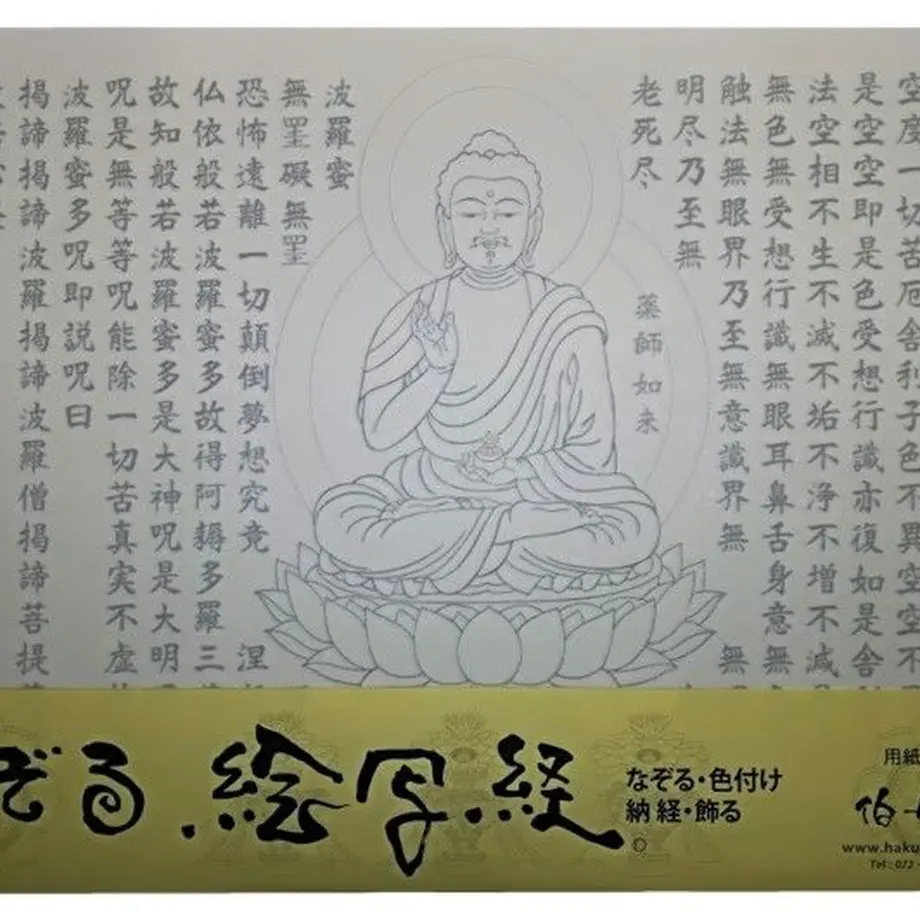 空度一切苦厄舍利子色不異空空不
是空空即是色受想行識亦復如是舎
法空相不生不滅不垢不浄不増不減
無色無受想行識無眼耳鼻舌身意無
触法無眼界乃至無意識界無 無
明尽乃至無
老死尽
薬師如来
波羅蜜
無罣礙無罣
恐怖遠離一切顛倒夢想究竟 涅
仏依般若波羅蜜多故得阿耨多羅三
故知般若波羅蜜多是大神呪是大明
呪是無等等呪能除一切苦真実不虚
波羅蜜多呪即説呪曰
揭諦揭諦波羅揭諦波羅僧揭諦菩提
ぞる.絵写経
なぞる・色付け
納経・飾る
用紙
伯
www.haku
Tel:072-